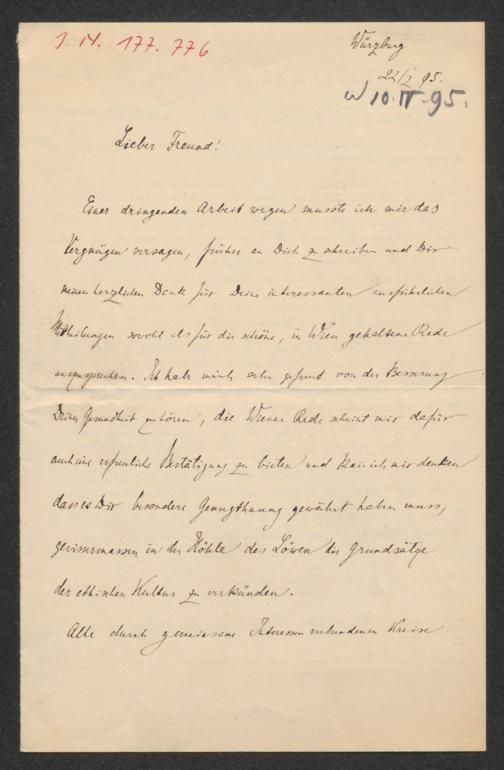 J. N. 177.776
Würzburg
22/2 95.
W 10. IV. 95.
Lieber Freund!
Einer dringenden Arbeit wegen musste ich mir das
Vergnügen versagen, früher an Dich zu schreiben und Dir
meinen herzlichen Dank für Deine interessanten ausführlichen
Mittheilungen sowohl als für die schöne, in Wien gehaltene Rede
auszusprechen. Ich habe mich sehr gefreut von der Besserung
Deiner Gesundheit zu hören, die Wiener Rede scheint mir dafür
auch eine erfreuliche Bestätigung zu bieten und kann ich mir denken
dass es Dir besondere Genugthuung gewährt haben muss,
gewissermassen in der Höhle des Löwen die Grundsätze
der ethischen Kultur zu verkünden.
Alle durch gemeinsame Interessen verbundenen Kreise